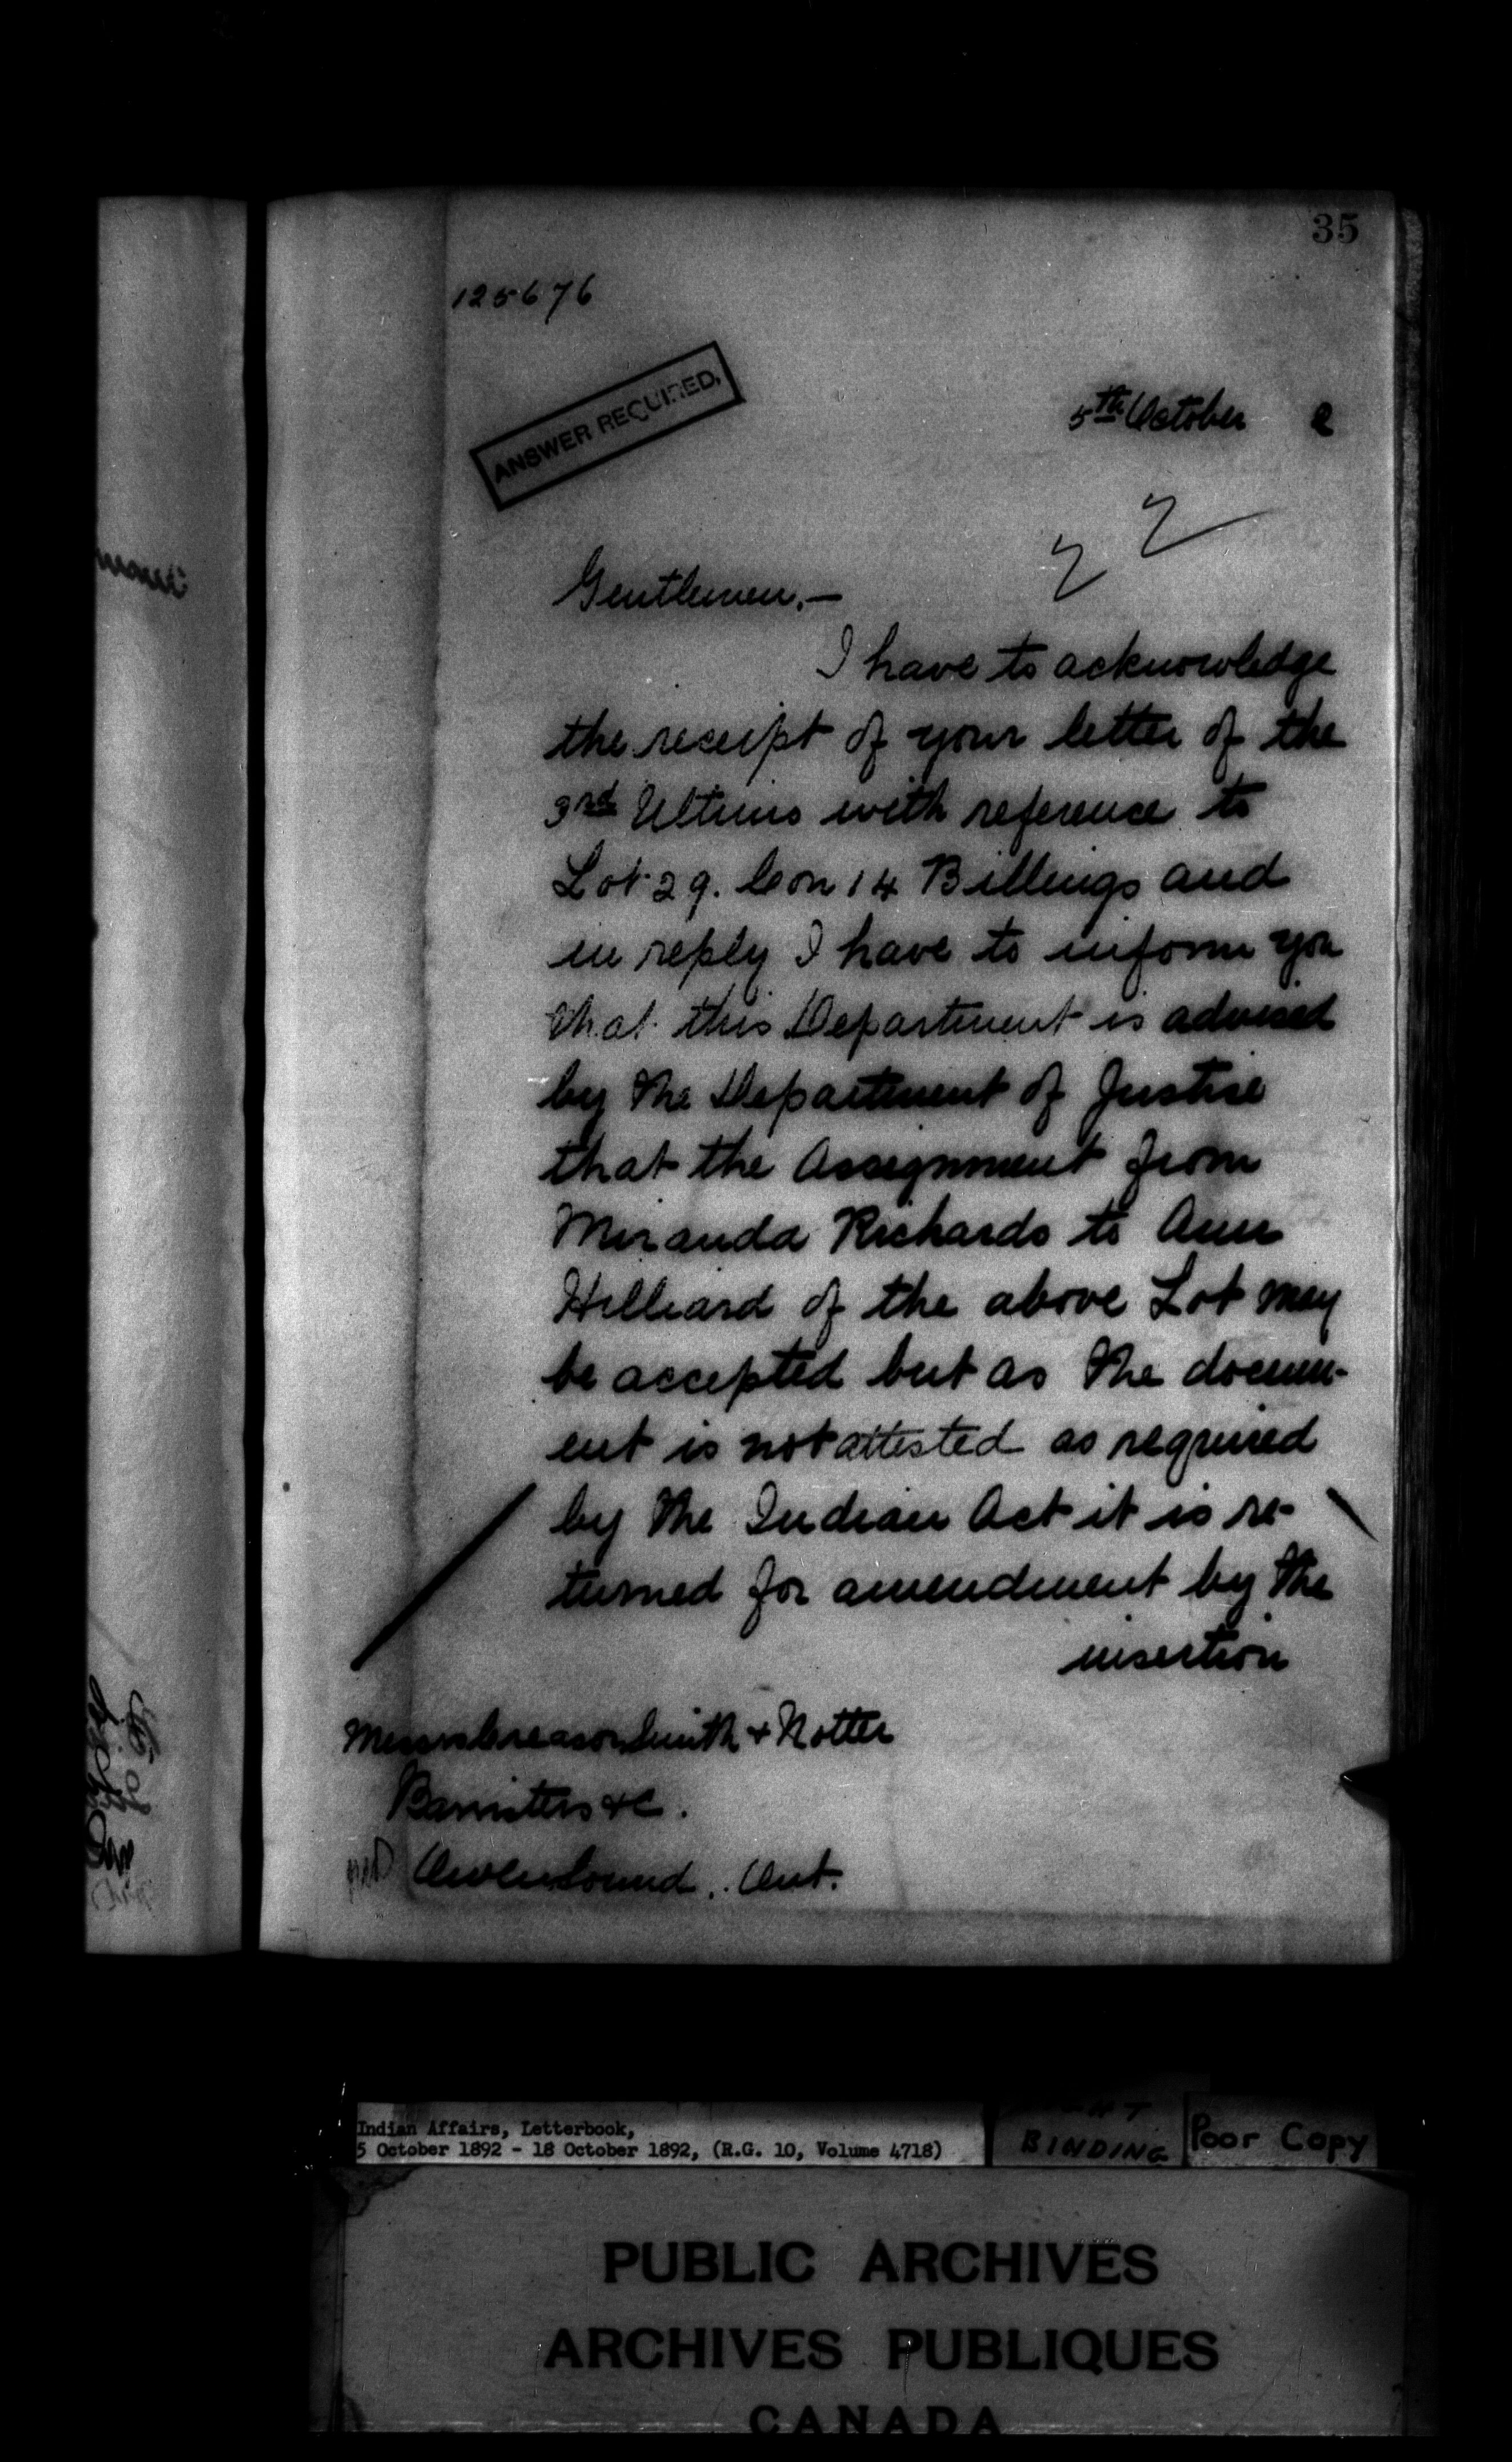 35
125676
ANSWER REQUIRED.
5th October 2
22
Gentlemen,—
I have to acknowledge
the receipt of your letter of the
3rd Ultimo with reference to
Lot 29. Con 14 Billings and
in reply I have to inform you
that this Department is advised
by the Department of Justice
that the Assignment from
Miranda Richards to Ann
Hilliard of the above Lot may
be accepted but as the docum-
ent is not attested as required
by the Indian Act it is re-
turned for amendment by the
insertion
Messrs Creasor Smith & Notter
Barristers &c.
Owen Sound, Ont.
Indian Affairs, Letterbook,
5 October 1892 - 18 October 1892, (R.G. 10, Volume 4718)
BINDING
Poor Copy
PUBLIC ARCHIVES
ARCHIVES PUBLIQUES
CANADA